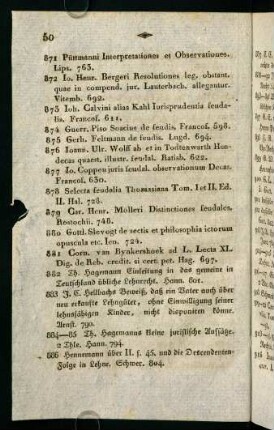 50
871 Püttmanni Interpretationes et Observationes.
Lips. 763.
872 Io. Henr. Bergeri Resolutiones leg. obstant.
quae in compend. jur. Lauterbach. allegantur.
Vitemb. 692.
873 Ioh. Calvini alias Kahl Iurisprudentia feuda-
lis. Francof. 611.
874 Guerr. Piso Soacine de feudis. Francof. 598.
875 Gerh. Feltmann de feudis. Lugd. 694.
876 Ioann. Ulr. Wolf ab et in Todtenwarth Han-
decas quaest. illustr. feudal. Ratisb. 622.
877 Io. Coppen juris feudal. observationum Decas.
Francof. 630.
878 Selecta feudalia Thomasiana Tom. I et II. Ed.
II. Hal. 728.
879 Car. Henr. Molleri Distinctiones feudales.
Rostochii. 748.
880 Gottl. Slevogt de sectis et philosophia ictorum
opuscula etc. Ien. 724.
881 Corn. van Bynkershoek ad L. Lecta XL.
Dig. de Reb. credit. si cert. pet. Hag. 697.
882 Th. Hagemann Einleitung in das gemeine in
Teutschland übliche Lehenrecht. Hann. 801.
883 J. C. Hellbachs Beweiß, daß ein Vater noch über
neu erkaufte Lehngüter, ohne Einwilligung seiner
lehnsfähigen Kinder, nicht disponiren könne.
Arnst. 790.
884—85 Th. Hagemanns kleine juristische Aufsätze.
2 Thle. Hann. 794
886 Hennemann über II. f. 45. und die Descendenten-
Folge in Lehne. Schwer. 804.